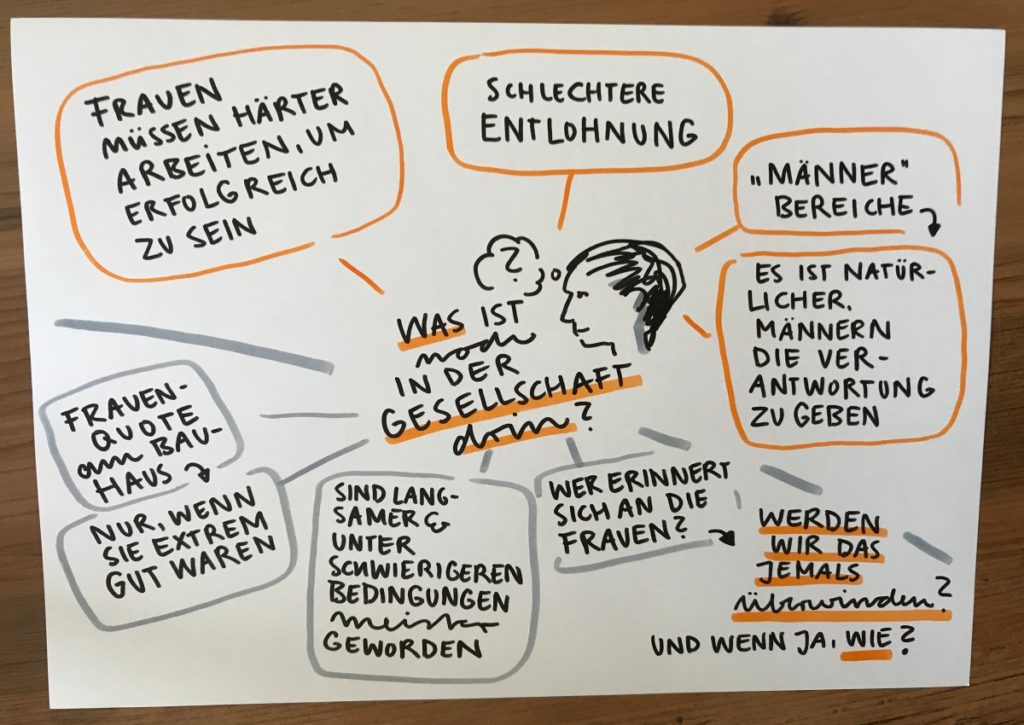 FRAUEN
MÜSSEN HÄRTER
ARBEITEN, UM
ERFOLGREICH
ZU SEIN
SCHLECHTERE
ENTLOHNUNG
„MÄNNER"
BEREICHE
ES IST NATÜR-
LICHER,
MÄNNERN
DIE VER-
ANTWORTUNG
ZU GEBEN
?
WAS IST
noch
IN DER
GESELLSCHAFT
drin?
FRAUEN-
QUOTE
am BAU-
HAUS
NUR, WENN
SIE EXTREM
GUT WAREN
SIND LANG-
SAMER &
UNTER
SCHWIERIGEREN
BEDINGUNGEN
meister
GEWORDEN
WER ERINNERT
SICH AN DIE
FRAUEN?
WERDEN
WIR DAS
JEMALS
überwinden?
UND WENN JA, WIE?